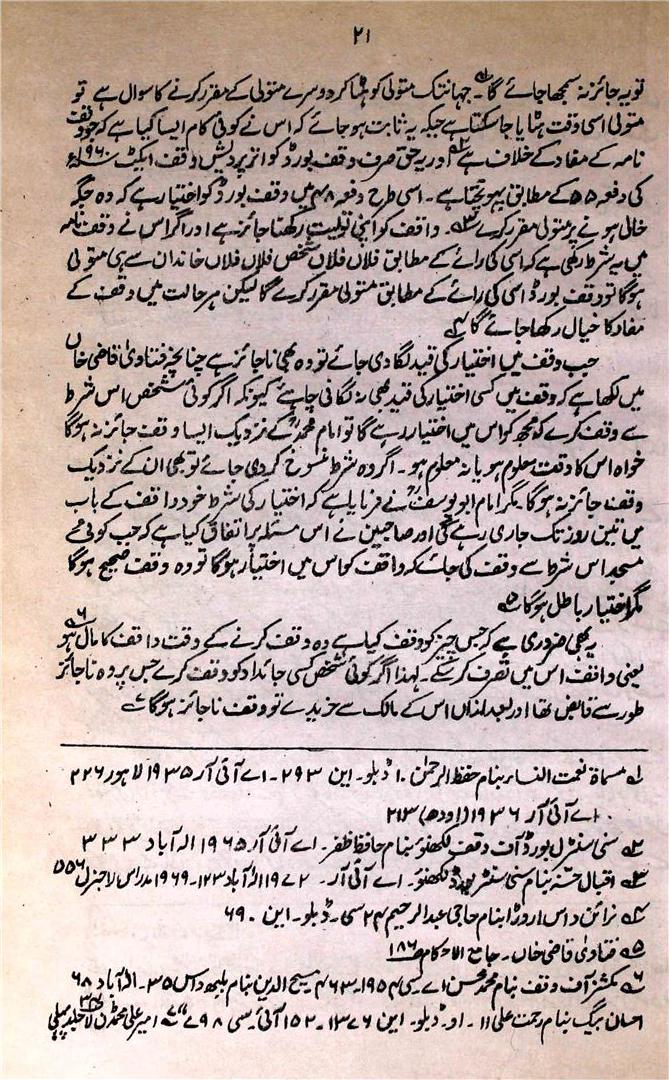 ۲۱
تو یہ جائز نہ سمجھا جائے گا۔ جہانتک متولی کو ہٹا کر دوسرے متولی کے مقرر کرنے کا سوال ہے تو
متولی اسی وقت ہٹایا جا سکتا ہے جبکہ یہ ثابت ہو جائے کہ اس نے کوئی کام ایسا کیا ہے کہ جو وقف
نامہ کے مفاد کے خلاف ہے اور یہ حق صرف وقف بورڈ کو اتر پردیش وقف ایکٹ ۱۹۶۰ء
کی دفعہ ۵۵ کے مطابق پہونچتا ہے۔ اسی طرح دفعہ ۴۸ میں وقف بورڈ کو اختیار ہے کہ وہ جگہ
خالی ہونے پر متولی مقرر کرے۔ واقف کو اپنی تولیت رکھنا جائز ہے اور اگر اس نے وقف نامہ
میں یہ شرط رکھی ہے کہ اسی کی رائے کے مطابق فلاں فلاں شخص فلاں فلاں خاندان سے ہی متولی
ہوگا تو وقف بورڈ اسی کی رائے کے مطابق متولی مقرر کرے گا لیکن ہر حالت میں وقف کے
مفاد کا خیال رکھا جائے گا۴
جب وقف میں اختیار کی قید لگا دی جائے تو وہ بھی ناجائز ہے چنانچہ فتاویٰ قاضی خاں
میں لکھا ہے کہ وقف میں کسی اختیار کی قید بھی نہ لگانی چاہئے کیونکہ اگر کوئی شخص اس شرط
سے وقف کرے کہ مجھ کو اس میں اختیار رہے گا تو امام محمدؒ کے نزدیک ایسا وقف جائز نہ ہوگا
خواہ اس کا وقت معلوم ہو یا نہ معلوم ہو۔ اگر وہ شرط منسوخ کر دی جائے تو بھی ان کے نزدیک
وقف جائز نہ ہوگا۔ مگر امام ابو یوسفؒ نے فرمایا ہے کہ اختیار کی شرط خود واقف کے باب
میں تین روز تک جاری رہے گی اور صاحبین نے اس مسئلہ پر اتفاق کیا ہے کہ جب کوئی شے
مسجد اس شرط سے وقف کی جائے کہ واقف کو اس میں اختیار ہوگا تو وہ وقف صحیح ہوگا
مگر اختیار باطل ہوگا۵
یہ بھی ضروری ہے کہ جس چیز کو وقف کیا ہے وہ وقف کرنے کے وقت واقف کا مال ہو۶
یعنی واقف اس میں تصرف کر سکے۔ لہذا اگر کوئی شخص کسی جائداد کو وقف کرے جس پر وہ ناجائز
طور سے قابض تھا اور بعد ازاں اس کے مالک سے خریدے تو وقف ناجائز ہوگا۷
۱ مسماۃ نعمت النساء بنام حفظ الرحمٰن ۱۰ ڈبلو۔ این ۲۹۳۔ اے آئی آر ۱۹۳۵ لاہور ۲۲۶
۱۰ اے آئی آر ۱۹۳۶ (اودھ) ۲۱۳
۲ سنی سنٹرل بورڈ آف وقف لکھنؤ بنام حافظ ظفر۔ اے آئی آر ۱۹۶۵ الہ آباد ۳۳۳
۳ اقبال حسنہ بنام سنی سنٹر بورڈ لکھنؤ۔ اے آئی آر۔ ۱۹۷۲ الہ آباد ۱۲۳۔ ۱۹۶۹ مدراس لا جنرل ۵۵۶
۴ نرائن داس اروڑا بنام حاجی عبدالرحیم ۲۴ سی۔ ڈبلو۔ این ۶۹۰
۵ فتاویٰ قاضی خاں۔ جامع الاحکام ص ۱۸۶
۶ کمشنر آف وقف بنام محمد محسن اے سی ۱۹۵۴۔ ۴۶۳ مسیح الدین بنام بلبھ داس ۳۵۔ الہ آباد ۶۸
احسان بیگ بنام رحمت علی ۱۱۔ او۔ ڈبلو۔ این ۱۳۷۶۔ ۱۵۲ آئی۔ سی ۷۹۸ ۷ امیر علی محمڈن لا جلد پہلی